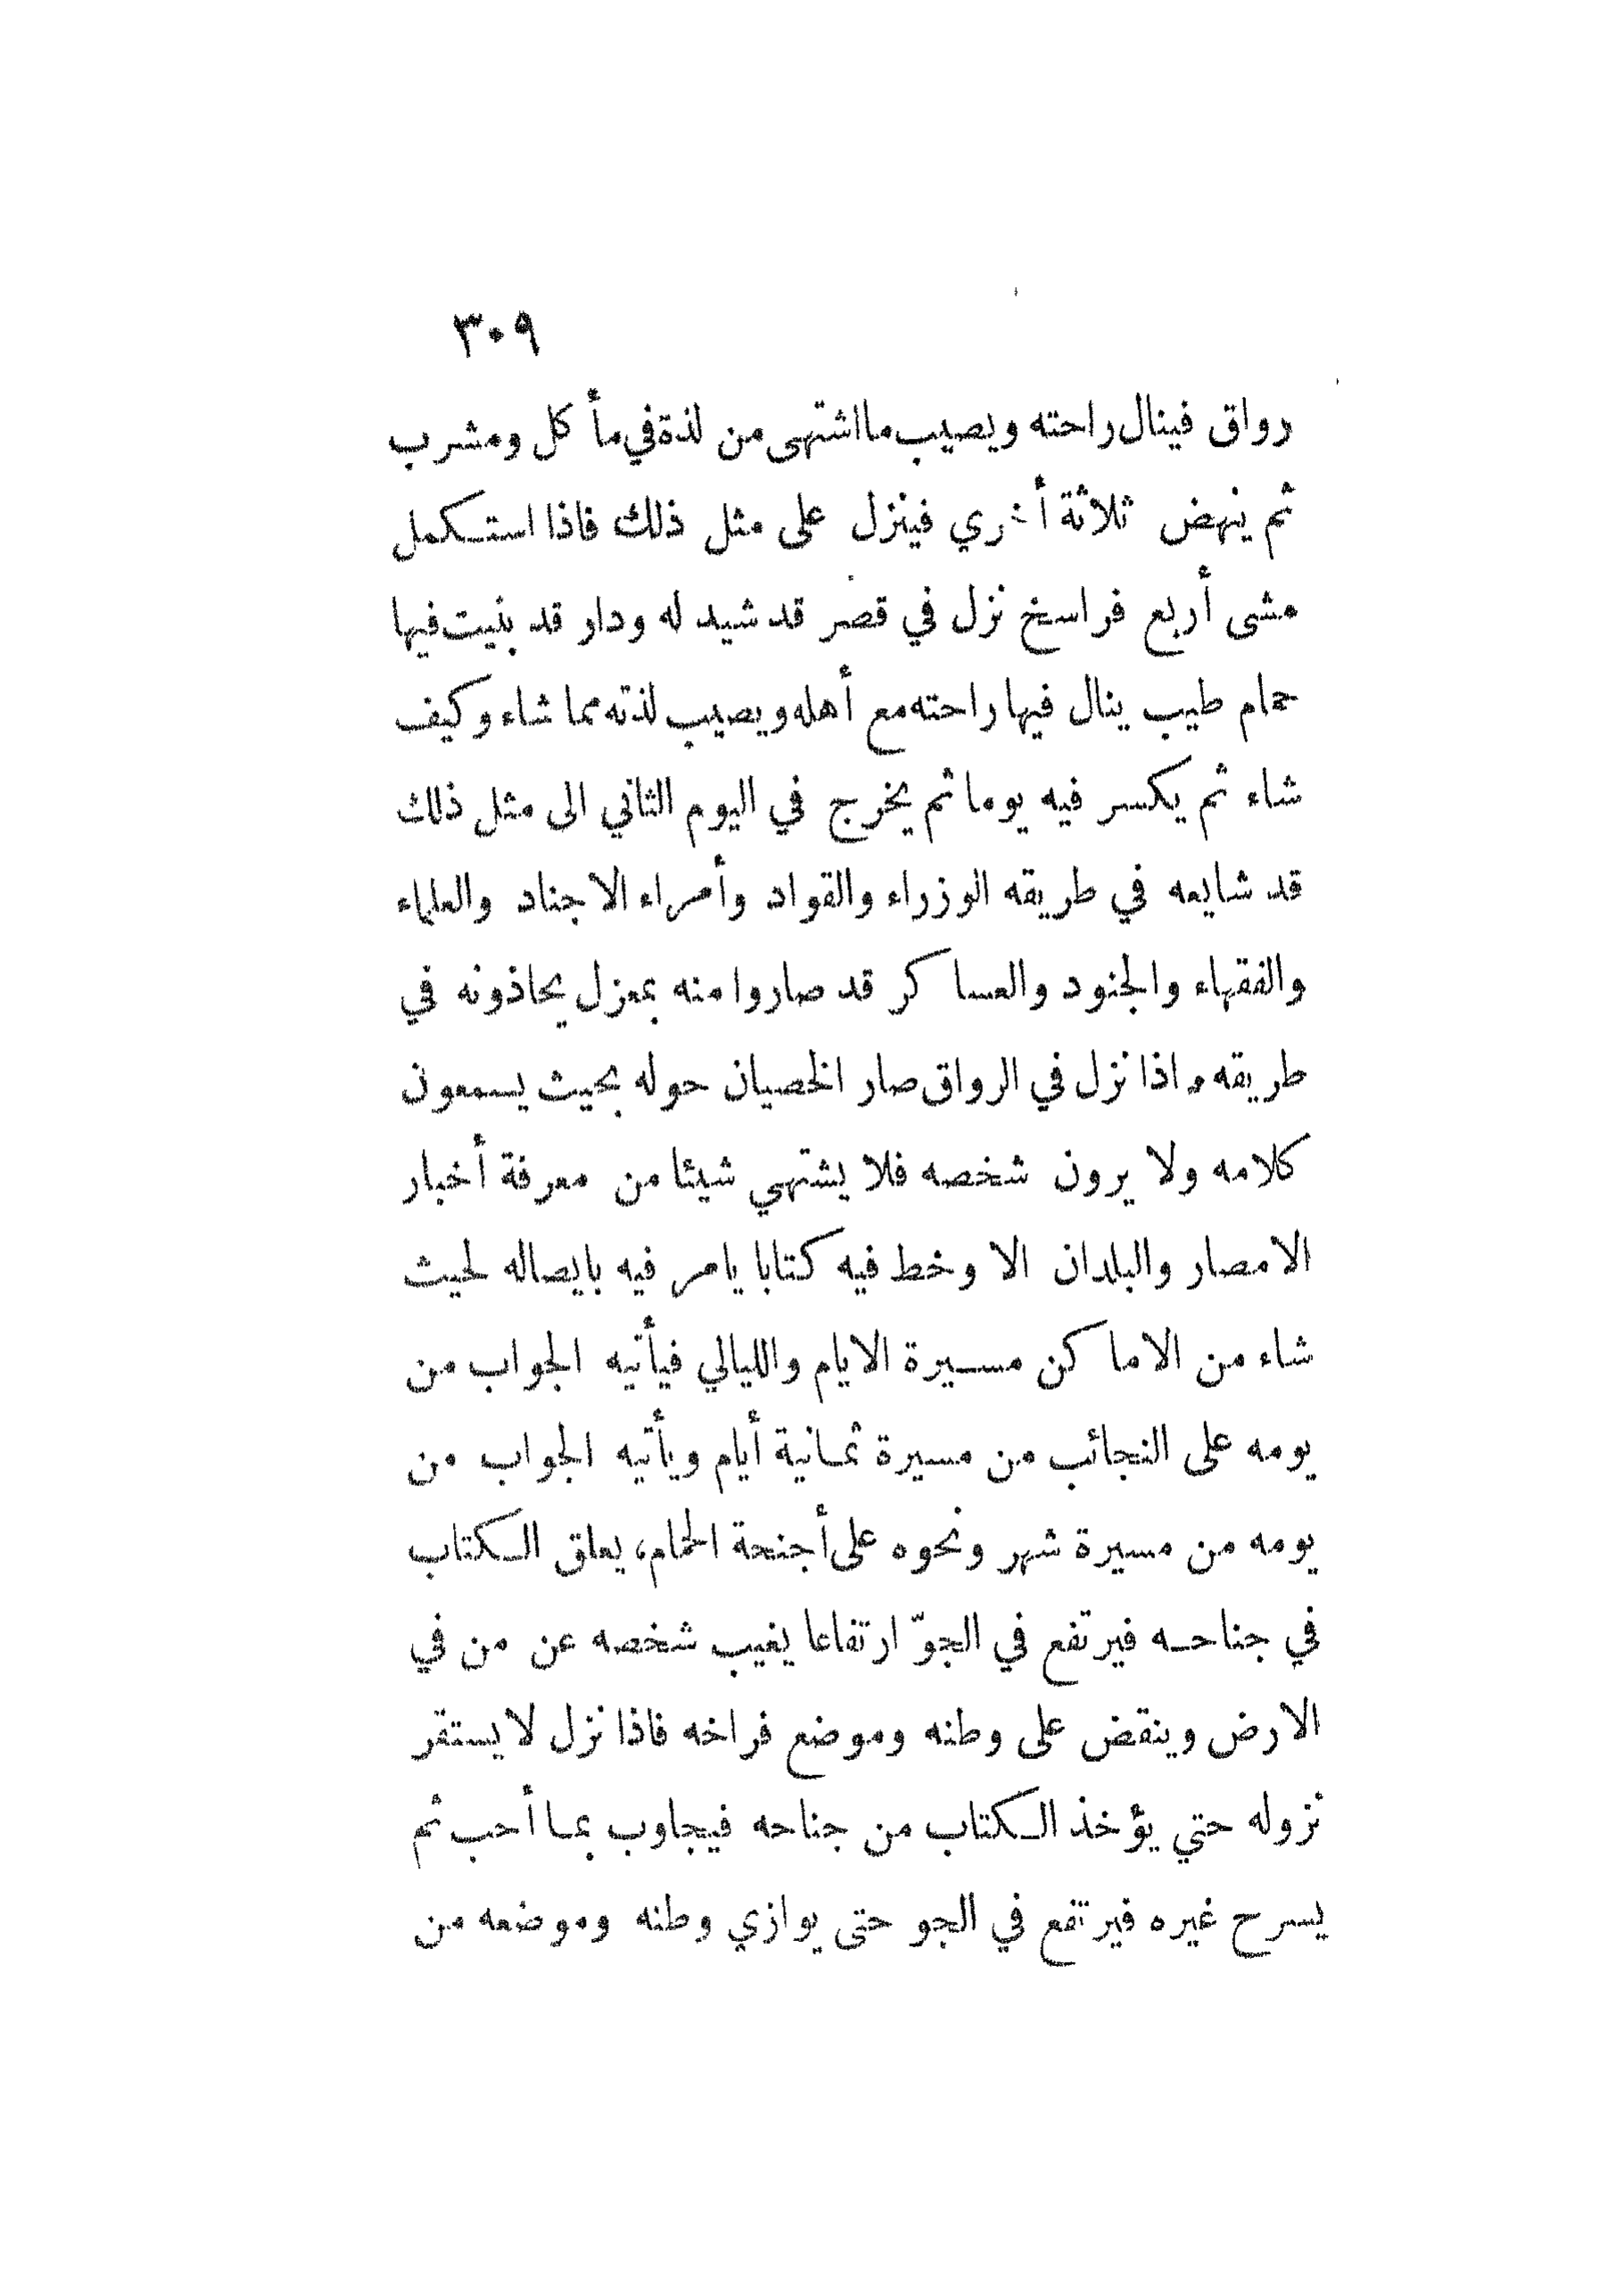 ٣٠٩
رواق فينال راحته ويصيب ما اشتهى من لذة في مأكل ومشرب
ثم ينهض ثلاثة أخري فينزل على مثل ذلك فاذا استكمل
مشى أربع فراسخ نزل في قصر قد شيد له ودار قد بنيت فيها
حمام طيب ينال فيها راحته مع أهله ويصيب لذته مما شاء وكيف
شاء ثم يكسر فيه يوما ثم يخرج في اليوم الثاني الى مثل ذلك
قد شايعه في طريقه الوزراء والقواد وأمراء الاجناد والعلماء
والفقهاء والجنود والعساكر قد صاروا منه بمعزل يحاذونه في
طريقه واذا نزل في الرواق صار الخصيان حوله بحيث يسمعون
كلامه ولا يرون شخصه فلا يشتهي شيئا من معرفة أخبار
الامصار والبلدان الا وخط فيه كتابا يامر فيه بايصاله لحيث
شاء من الاماكن مسيرة الايام والليالي فيأتيه الجواب من
يومه على النجائب من مسيرة ثمانية أيام ويأتيه الجواب من
يومه من مسيرة شهر ونحوه على أجنحة الحمام، يعلق الكتاب
في جناحه فيرتفع في الجوّ ارتفاعا يغيب شخصه عن من في
الارض وينقض على وطنه وموضع فراخه فاذا نزل لا يستقر
نزوله حتي يؤخذ الكتاب من جناحه فيجاوب بما أحب ثم
يسرح غيره فيرتفع في الجو حتى يوازي وطنه وموضعه من